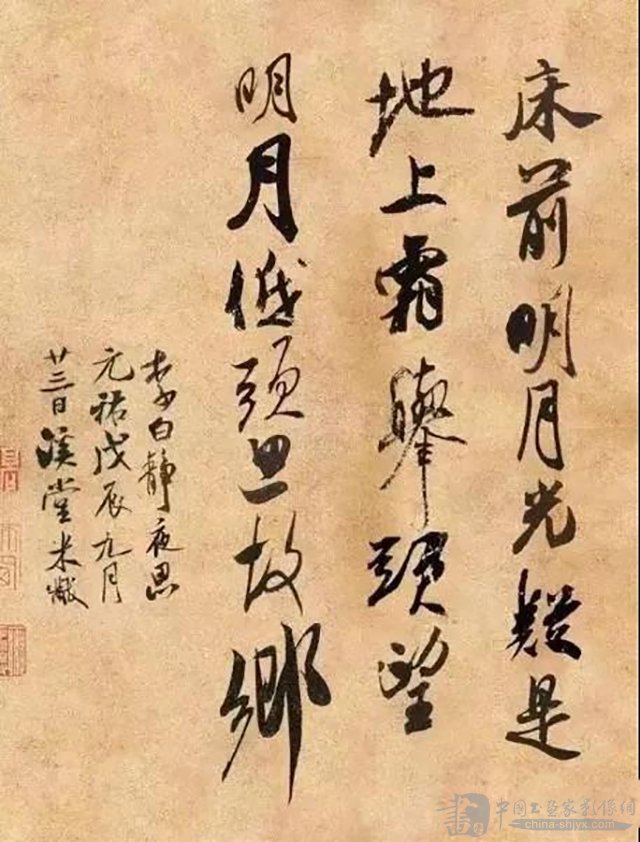 床前明月光疑是
地上霜舉頭望
明月低頭思故鄉
李白靜夜思
元祐戊辰九月
廿三日溪堂米黻
中国书画家影像网
china-shjyx.com